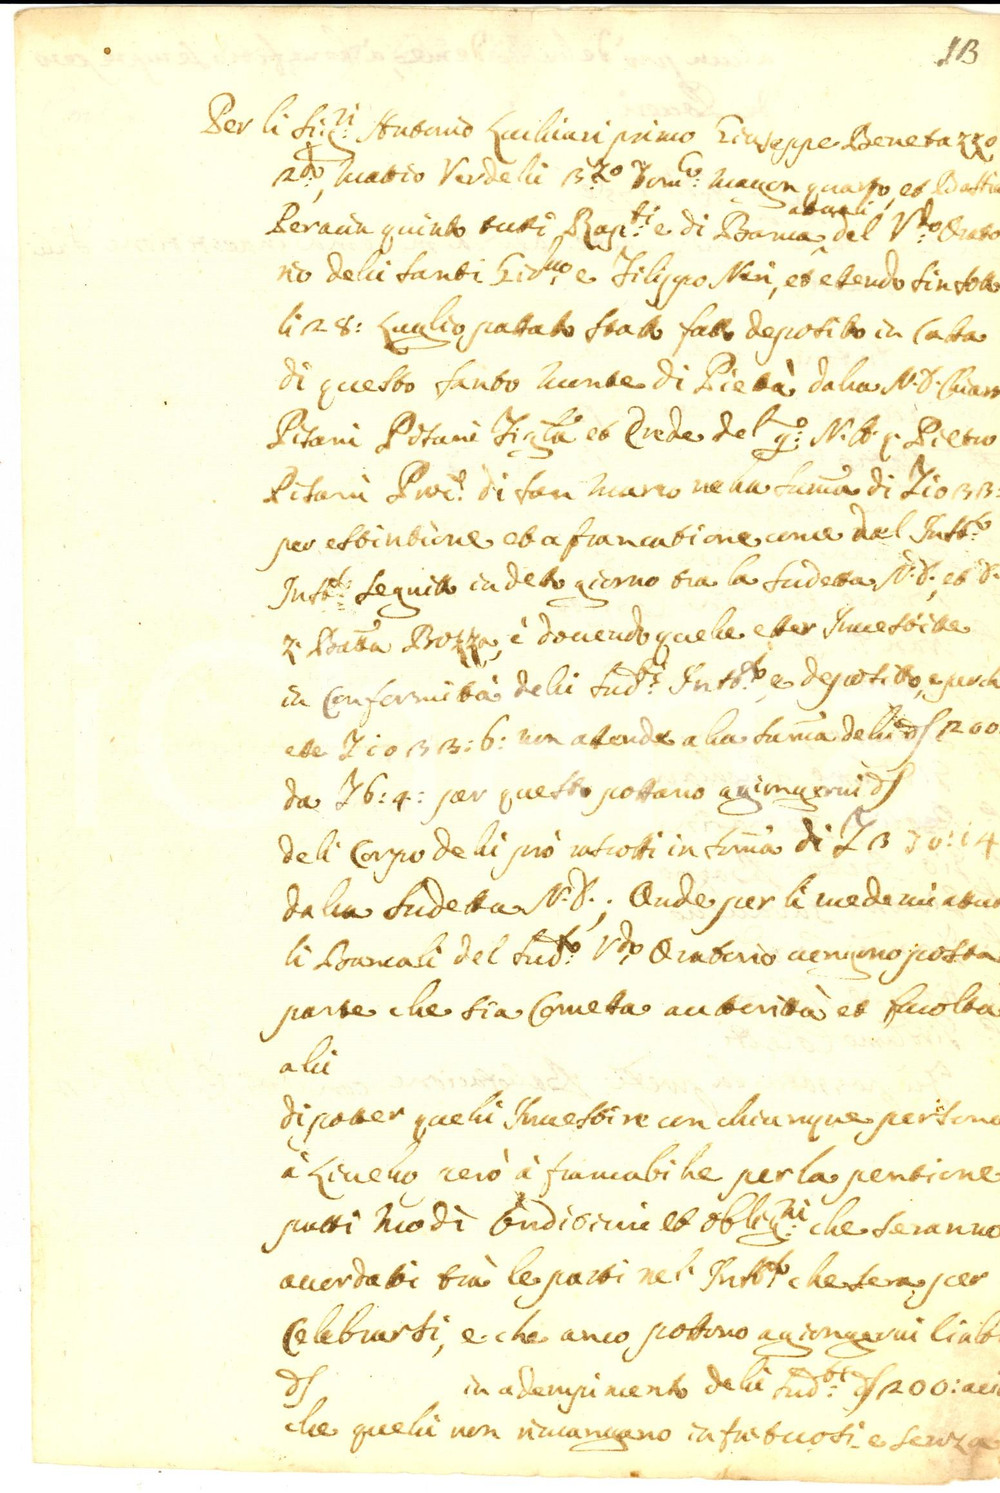 13
Per li Sig:ri Antonio primo Giuseppe Benetazzo
2do, Mattio Verdelli 3:zo Dom:co Magon quarto, et Batti
Peracin quinto tutti Rap:ti e di Banca attuali del V:do Orato
rio delli Santi Giro:mo e Filippo Neri, et essendo sin sotto
li 28: Luglio passato stato fatto deposito in Cassa
di questo Santo Monte di Pietà dalla N.D. Chiara
Pisani Pisani Figl:a et Erede del q: N.H. q: Pietro
Pisani Proc:r di San Marco nella summa di
per estintione et afrancatione come dal Instr:to
Instr:to seguito in detto giorno tra la sudetta N.D. et D.
Z: Batta Bozza, è dovendo quelle esser Investite
in Conformità delli sud:ti Instr:to, e deposito, e perch
non attende alla summa delli d 200
da 6:4: per questo possano agiongervi d
deli Corpo delli prò riscossi in summa di
dalla sudetta N.D.; Onde per li medemi attua
li Bancali del sud:to V:do Oratorio vengono posta
parte che sia Concessa auttorittà et facoltà
alli
di potter quelli Investire con chiunque persona
à Livello però à francabille per la pensione
patti modi Condicioni et oblig:ni che seranno
acordatti trà le parti nel Instr:to che sera per
Celebrarsi, e che anco possono agiongervi li altri
d in adempimento delli sud:ti d 200: acciò
che quelli non rimangano infrutuosi e senza